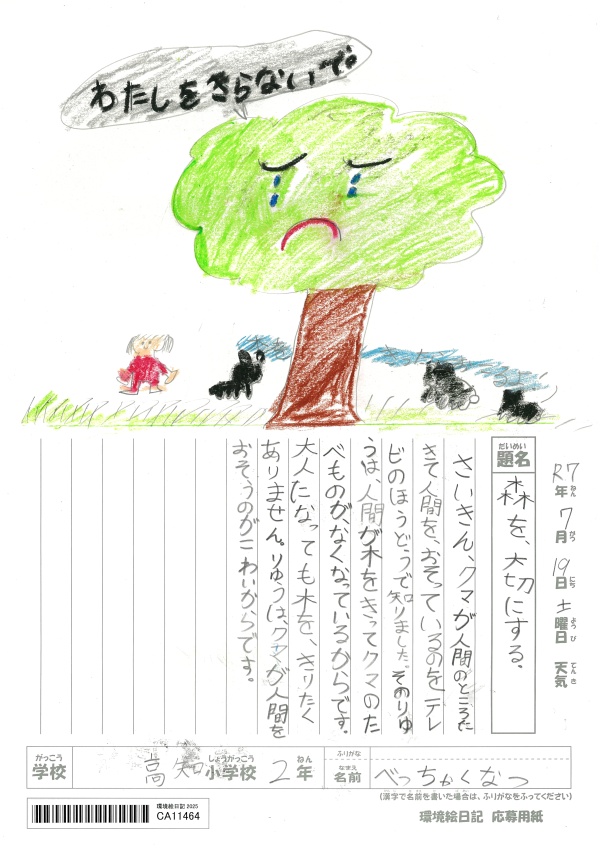 わたしをきらないで。
R7年ねん
7月がつ
19日にち
土曜日ようび
天気てんき
だいめい
題名
森を、大切にする.
さいきん、クマが人間のところに
きて人間を、おそっているのをテレ
ビのほうどうで知りました。そのりゆ
うは、人間が木をきってクマのた
べものが、なくなっているからです。
大人たなっても木を、きりたく
ありません。りゆうは、クマが人間を
おそうのがこわいからです。
がっこう
学校
高知小学校
しょうがっこう
2年
ねん
ふりがな
なまえ
名前
べっちゃくなつ
(漢字で名前を書いた場合は、ふりがなをふってください)
環境絵日記 2025
CA11464
環境絵日記 応募用紙